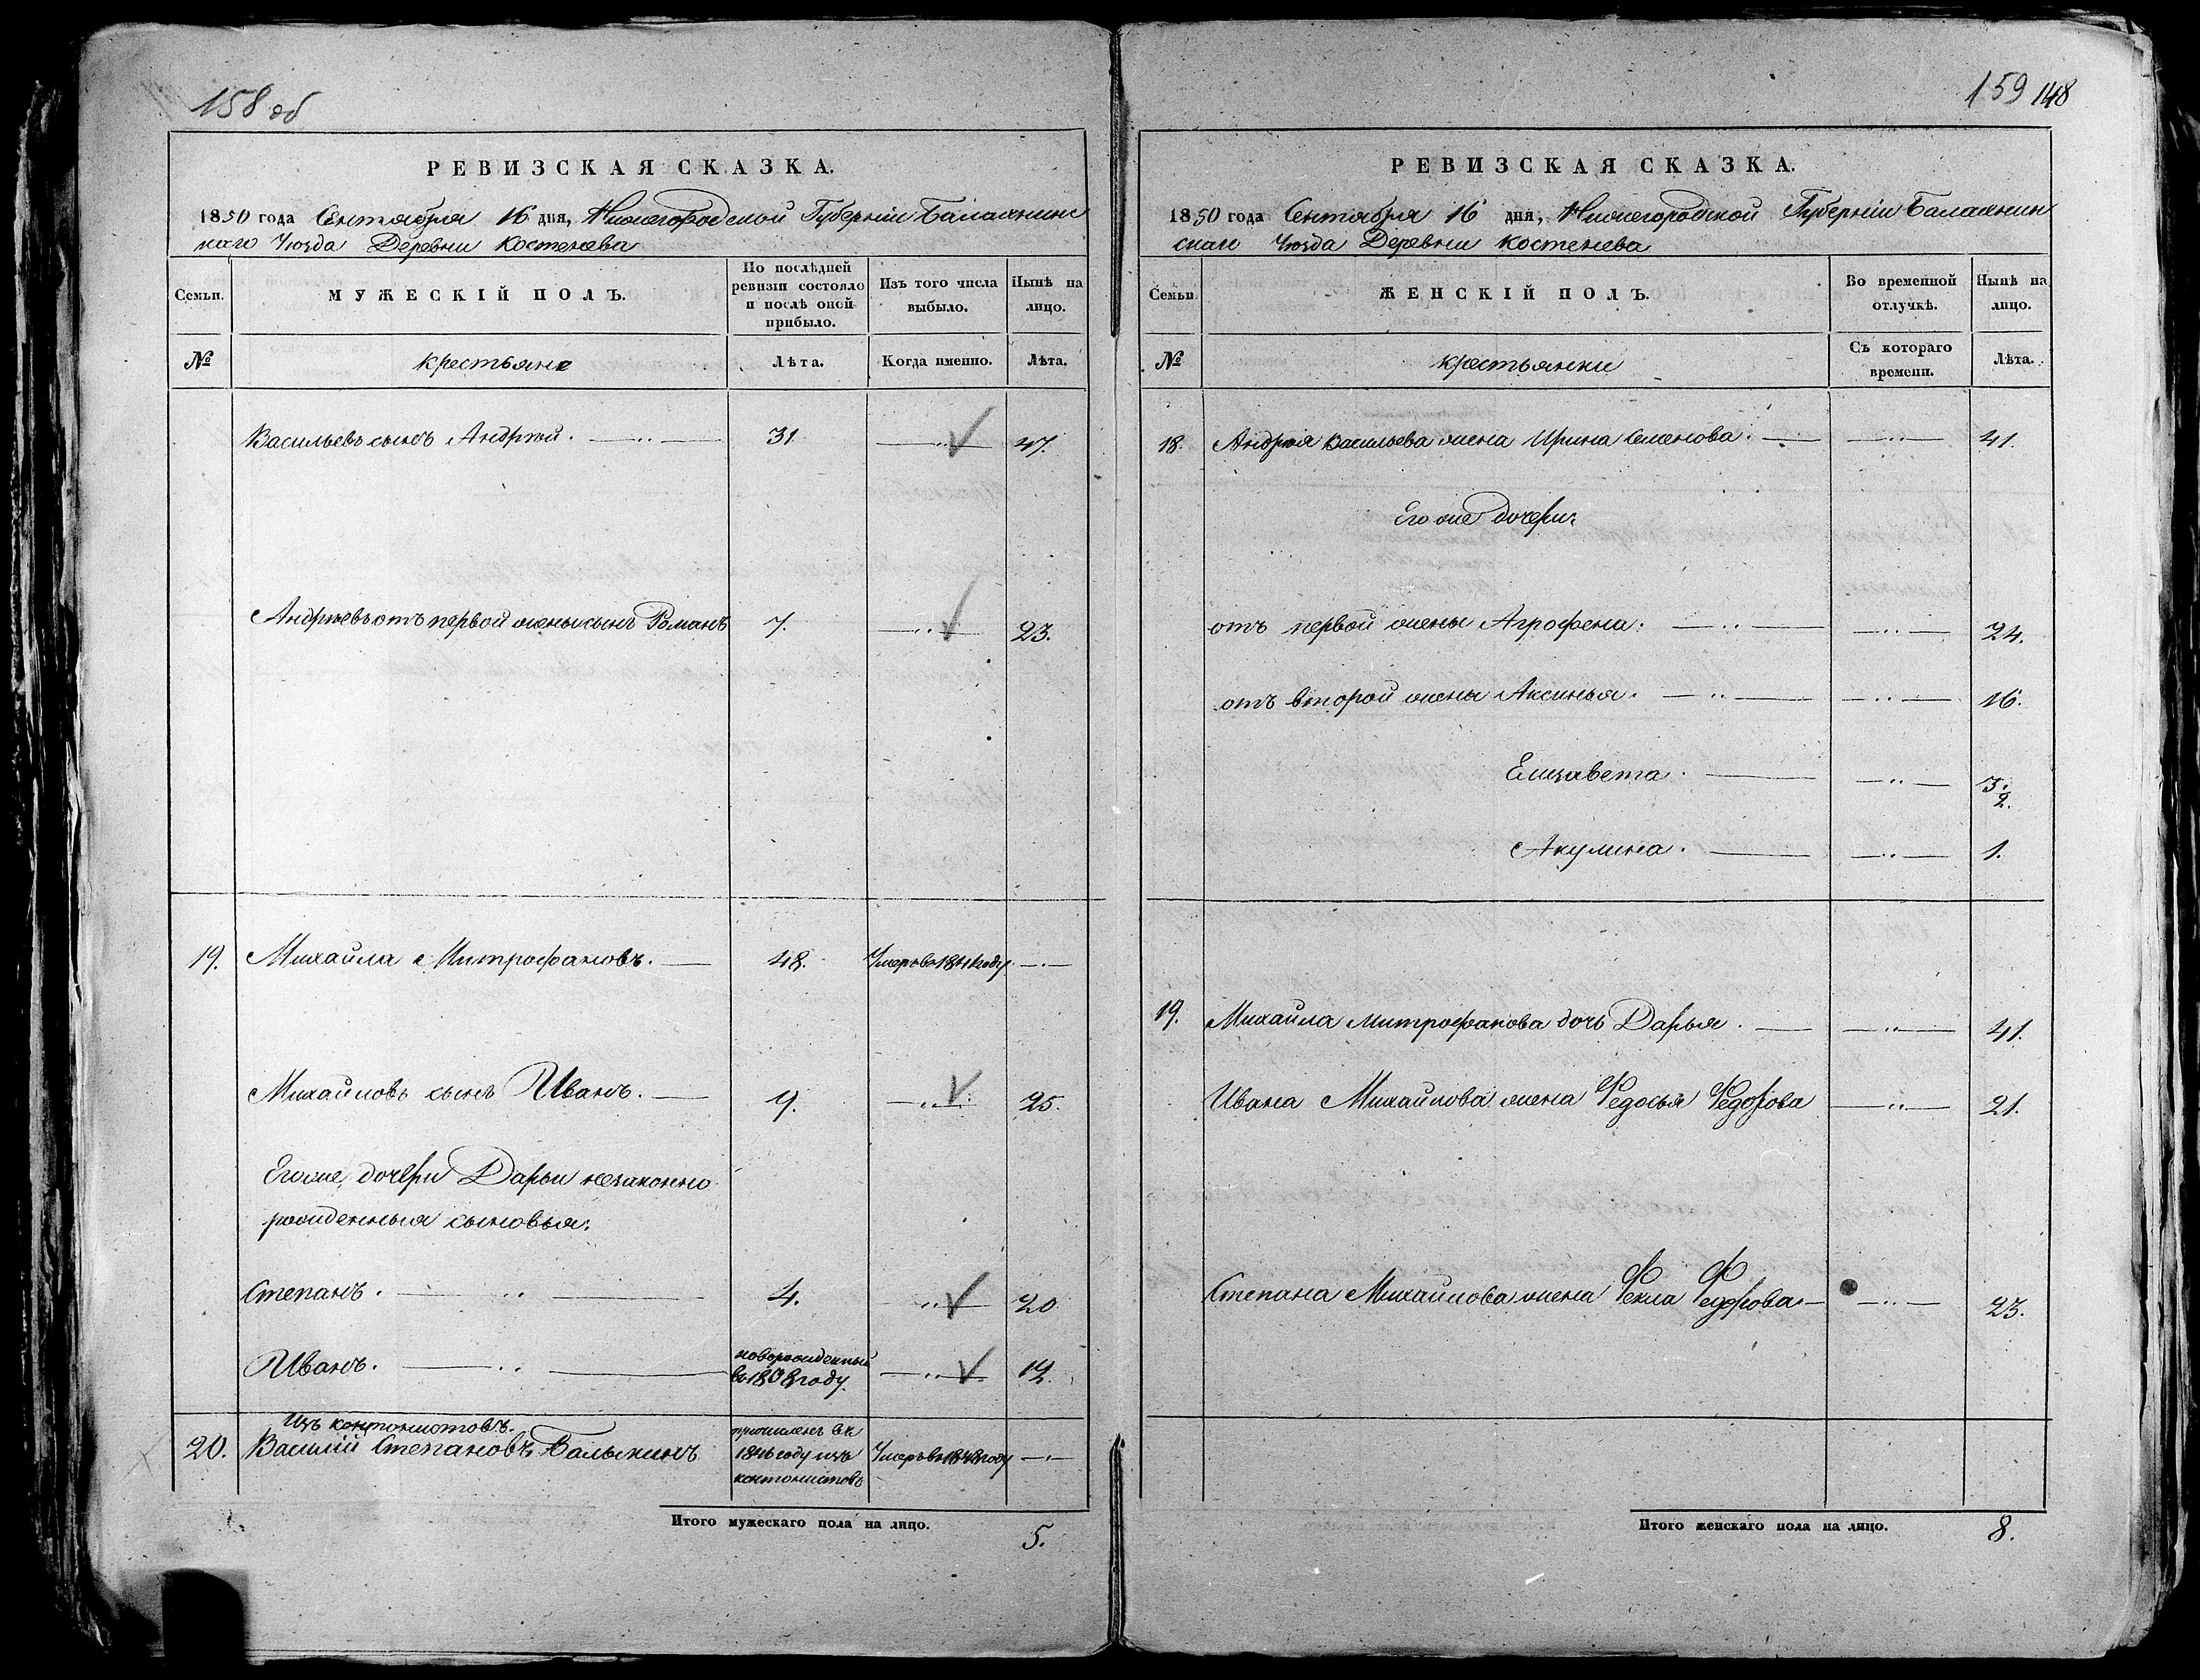 158 об
РЕВИЗСКАЯ СКАЗКА.
1850 года Сентября 16 дня, Нижегородской Губерніи Балахнинс
каго Уѣзда Деревни Костенева
Семьи. МУЖЕСКІЙ ПОЛЪ. По послѣдней ревизіи состояло и послѣ оной прибыло. Изъ того числа выбыло. Нынѣ на лицо.
№ крестьяне Лѣта. Когда именно. Лѣта.
Васильевъ сынъ Андрей. 31 47.
Андреевъ отъ первой жены сынъ Романъ 7. 23.
19. Михайла Митрофановъ. 48. Умеръ въ 1841 году
Михайловъ сынъ Иванъ. 9. 25.
Его же дочери Дарьи незаконно
рожденныя сыновья.
Степанъ. 4. 20
Иванъ. новорожденный 12.
въ 1838 году.
Изъ кантонистовъ.
20. Василій Степановъ Балыкинъ въ 1846 году изъ кантонистовъ Умеръ въ 1848 году
Итого мужескаго пола на лицо. 5.
159 148
РЕВИЗСКАЯ СКАЗКА.
1850 года Сентября 16 дня, Нижегородской Губерніи Балахнин
скаго Уѣзда Деревни Костенева
Семьи ЖЕНСКІЙ ПОЛЪ. Во временной отлучкѣ. Нынѣ на лицо.
№ крестьянки Съ котораго времени. Лѣта.
18. Андрея Васильева жена Ирина Семенова. 41.
Его же дочери.
отъ первой жены Агрофена. 24.
отъ второй жены Аксинья. 16.
Елизавета. 3/2.
Акулина. 1.
19. Михайла Митрофанова дочь Дарья. 41.
Ивана Михайлова жена Федосья Федорова 21.
Степана Михайлова жена Фекла Федорова 23.
Итого женскаго пола на лицо. 8.